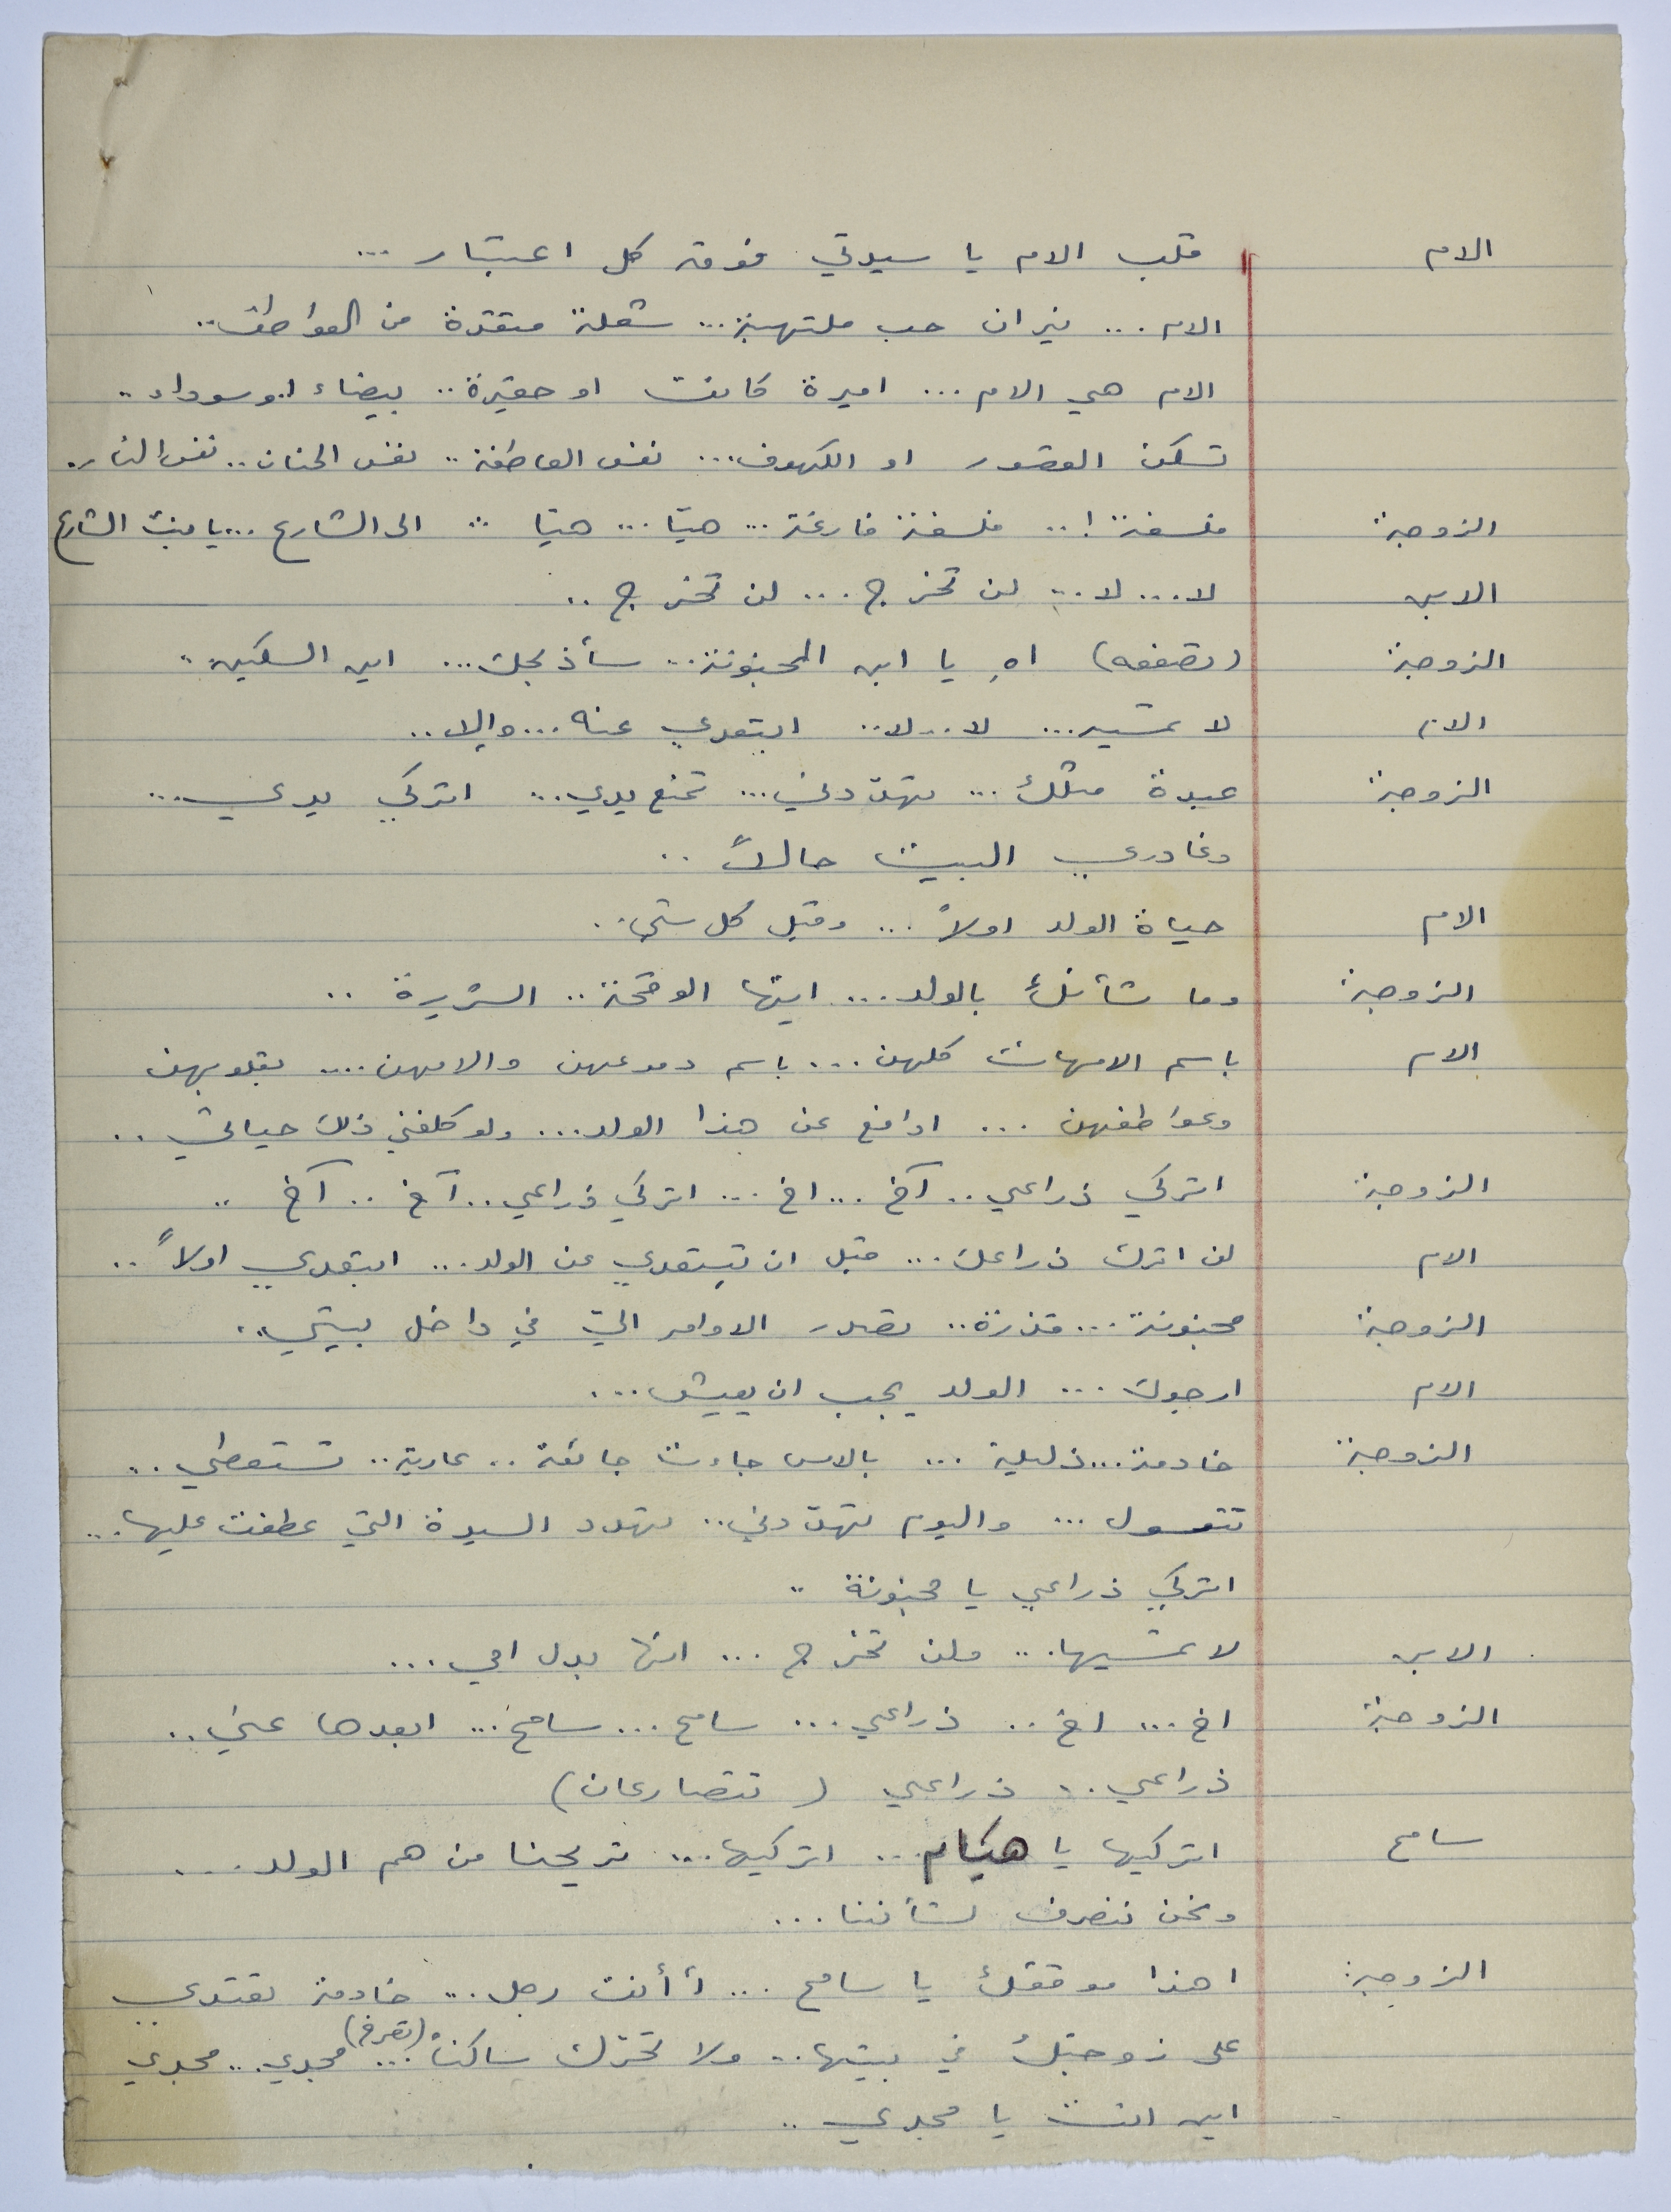 الام قلب الام يا سيدتي فوق كل اعتبار ...
الام ... نيران حب ملتهبة ... شعلة متقدة من العواطف ..
الام هي الام ... اميرة كانت او حقيرة .. بيضاء او سوداء ..
تسكن القصور او الكهوف ... نفس العاطفة .. نفس الحنان .. نفس النار .
الزوجة فلسفة ! .. فلسفة فارغة ... هيّا ... هيّا ... الى الشارع ... يا بنت الشارع
الابن لا ... لا ... لن تخرج ... لن تخرج ..
الزوجة (تصفعه) اهِ يا ابن المجنونة ... سأذبحك ... اين السكين ..
الام لا تمسيه ... لا .. لا .. ابتعدي عنه ... والا ..
الزوجة عبدة مثلك ... تهدّدني ... تمنع يدي ... اتركي يدي ...
وغادري البيت حالاً ..
الام حياة الولد اولاً ... وقبل كل شيء ..
الزوجة وما شأنكِ بالولد ... ايتها الوقحة .. الشريرة ..
الام باسم الامهات كلهن ... باسم دموعهن والامهن .... بقلوبهن
وعواطفهن ... ادافع عن هذا الولد ... ولو كلفني ذلك حياتي ..
الزوجة اتركي ذراعي .. آخ ... اخ ... اتركي ذراعي .. آخ .. آخ ..
الام لن اترك ذراعك ... قبل ان تبتعدي عن الولد ... ابتعدي اولاً ..
الزوجة مجنونة ... قذرة .. تصدر الاوامر اليّ في داخل بيتي ..
الام ارجوك ... الولد يجب ان يعيش ...
الزوجة خادمة ... ذليلة ... بالامس جاءت جائعة .. عارية .. تستعطي ..
تتوسل ... واليوم تهدّدني .. تهدد السيدة التي عطفت عليها ...
اتركي ذراعي يا مجنونة ..
الابن لا تمسيها ... ولن تخرج ... انها بدل امي ...
الزوجة اخ ... اخ .. ذراعي ... سامح ... سامح ... ابعدها عني ..
ذراعي .. ذراعي ( تتصارعان )
سامح اتركيها يا هيام ... اتركيها ... تريحنا من هم الولد ...
ونحن ننصرف لشأننا ...
الزوجة اهذا موقفك يا سامح ... أأنت رجل ... خادمة تعتدي
على زوجتك في بيتها .. ولا تحرّك ساكناً ... (تصرخ) مجدي ... مجدي
اين انت يا مجدي ..